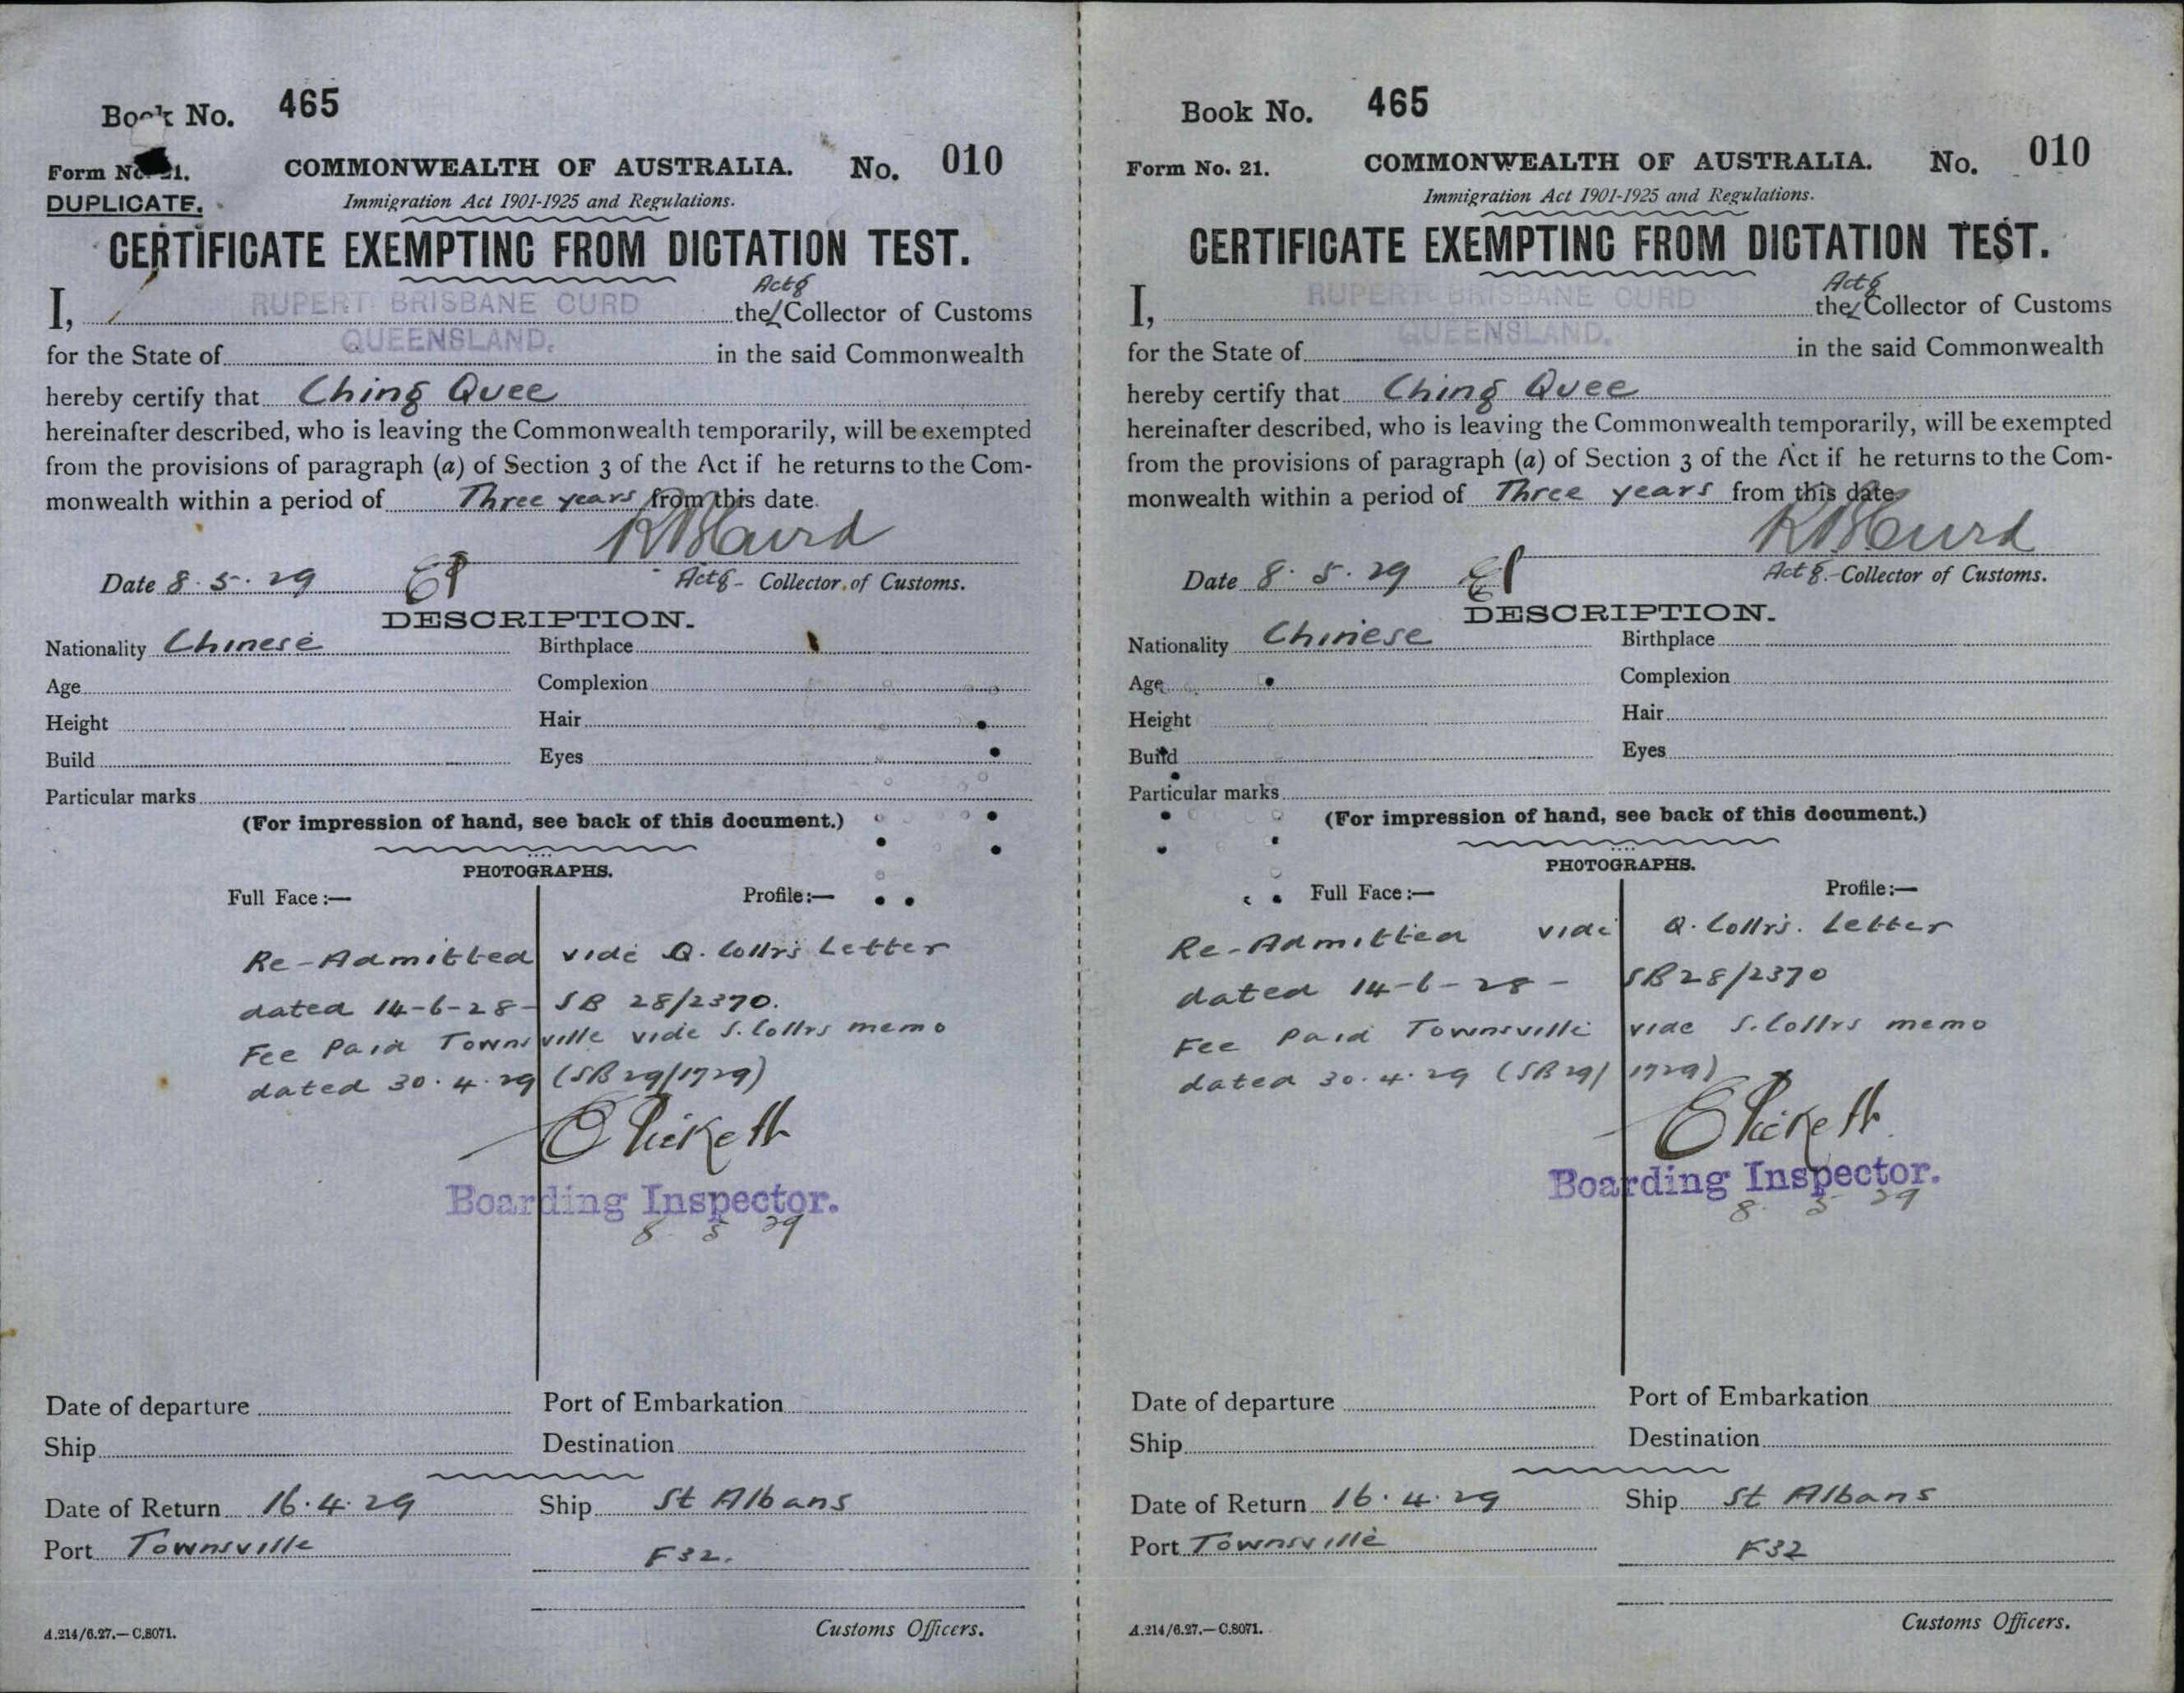 Book No. 465
Form No. 21. COMMONWEALTH OF AUSTRALIA. No. 010
DUPLICATE. Immigration Act 1901-1925 and Regulations.
CERTIFICATE EXEMPTING FROM DICTATION TEST.
Actg
I, RUPERT BRISBANE CURD the Collector of Customs
for the State of QUEENSLAND. in the said Commonwealth
hereby certify that Ching Quee
hereinafter described, who is leaving the Commonwealth temporarily, will be exempted
from the provisions of paragraph (a) of Section 3 of the Act if he returns to the Com-
monwealth within a period of Three years from this date.
RBCurd
Date 8.5.29 EP Actg- Collector of Customs.
DESCRIPTION.
Nationality Chinese Birthplace
Age Complexion
Height Hair
Build Eyes
Particular marks
(For impression of hand, see back of this document.)
PHOTOGRAPHS.
Full Face:— Profile:—
Re-Admitted vide Q. Collrs Letter
dated 14-6-28- SB 28/2370.
Fee Paid Townsville vide S. Collrs memo
dated 30.4.29 (SB 29/1729)
E Pickett
Boarding Inspector.
8 5 29
Date of departure Port of Embarkation
Ship Destination
Date of Return 16.4.29 Ship St Albans
Port Townsville F32.
Customs Officers.
A.214/6.27.—C.8071.
Book No. 465
Form No. 21. COMMONWEALTH OF AUSTRALIA. No. 010
Immigration Act 1901-1925 and Regulations.
CERTIFICATE EXEMPTING FROM DICTATION TEST.
Actg
I, RUPERT BRISBANE CURD the Collector of Customs
for the State of QUEENSLAND. in the said Commonwealth
hereby certify that Ching Quee
hereinafter described, who is leaving the Commonwealth temporarily, will be exempted
from the provisions of paragraph (a) of Section 3 of the Act if he returns to the Com-
monwealth within a period of Three years from this date.
RBCurd
Date 8.5.29 EP Actg.- Collector of Customs.
DESCRIPTION.
Nationality Chinese Birthplace
Age Complexion
Height Hair
Build Eyes
Particular marks
(For impression of hand, see back of this document.)
PHOTOGRAPHS.
Full Face:— Profile:—
Re-Admitted vide Q. Collrs. Letter
dated 14-6-28 - SB28/2370
Fee Paid Townsville vide S. Collrs memo
dated 30.4.29 (SB 29/1729)
E Pickett
Boarding Inspector.
8. 5 29
Date of departure Port of Embarkation
Ship Destination
Date of Return 16.4.29 Ship St Albans
Port Townsville F32
Customs Officers.
A.214/6.27.—C.8071.